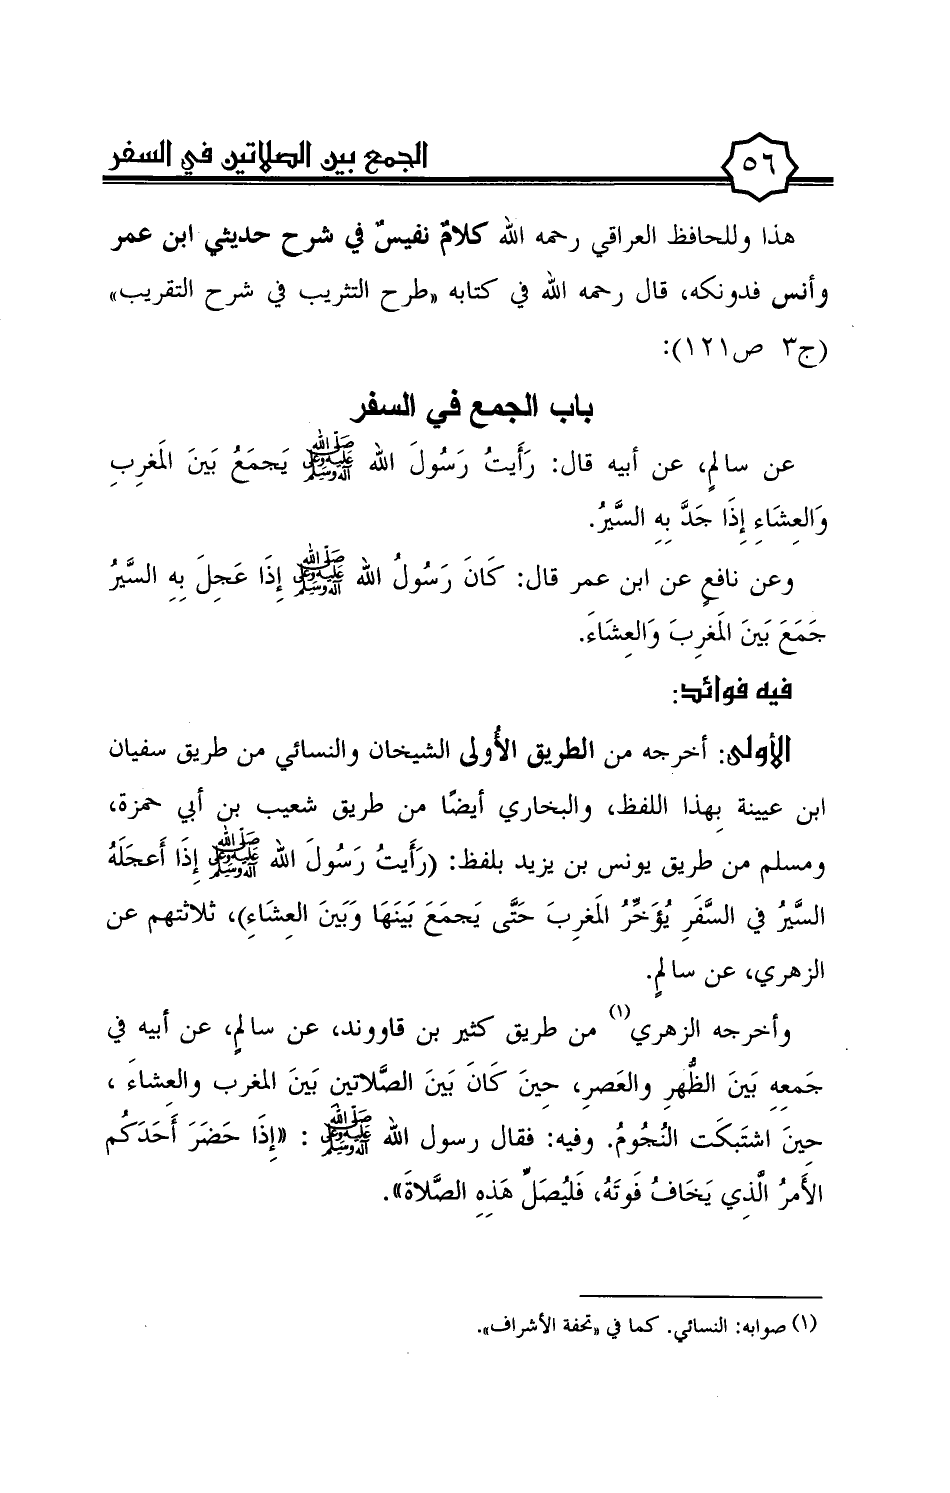 ٥٦
الجمع بين الصلاتين في السفر
هذا وللحافظ العراقي رحمه الله كلامٌ نفيسٌ في شرح حديثي ابن عمر
وأنس فدونكه، قال رحمه الله في كتابه «طرح التثريب في شرح التقريب»
(ج٣ ص١٢١):
باب الجمع في السفر
عن سالمٍ، عن أبيه قال: رَأَيتُ رَسُولَ الله ﷺ يَجمَعُ بَينَ المَغرِبِ
وَالعِشَاءِ إِذَا جَدَّ بِهِ السَّيرُ.
وعن نافعٍ عن ابن عمر قال: كَانَ رَسُولُ الله ﷺ إِذَا عَجِلَ بِهِ السَّيرُ
جَمَعَ بَينَ المَغرِبَ وَالعِشَاءَ.
فيه فوائد:
الأولى: أخرجه من الطريق الأُولى الشيخان والنسائي من طريق سفيان
ابن عيينة بِهذا اللفظ، والبخاري أيضًا من طريق شعيب بن أبي حمزة،
ومسلم من طريق يونس بن يزيد بلفظ: (رَأَيتُ رَسُولَ الله ﷺ إِذَا أَعجَلَهُ
السَّيرُ في السَّفَرِ يُؤَخِّرُ المَغرِبَ حَتَّى يَجمَعَ بَينَهَا وَبَينَ العِشَاءِ)، ثلاثتهم عن
الزهري، عن سالمٍ.
وأخرجه الزهري(١) من طريق كثير بن قاووند، عن سالمٍ، عن أبيه في
جَمعِهِ بَينَ الظُّهرِ والعَصرِ، حِينَ كَانَ بَينَ الصَّلاتين بَينَ المغرب والعِشاءَ ،
حِينَ اشتَبكَت النُّجُومُ. وفيه: فقال رسول الله ﷺ : «إِذَا حَضَرَ أَحَدَكُم
الأَمرُ الَّذِي يَخَافُ فَوتَهُ، فَليُصَلِّ هَذِهِ الصَّلاةَ».
(١) صوابه: النسائي. كما في «تحفة الأشراف».